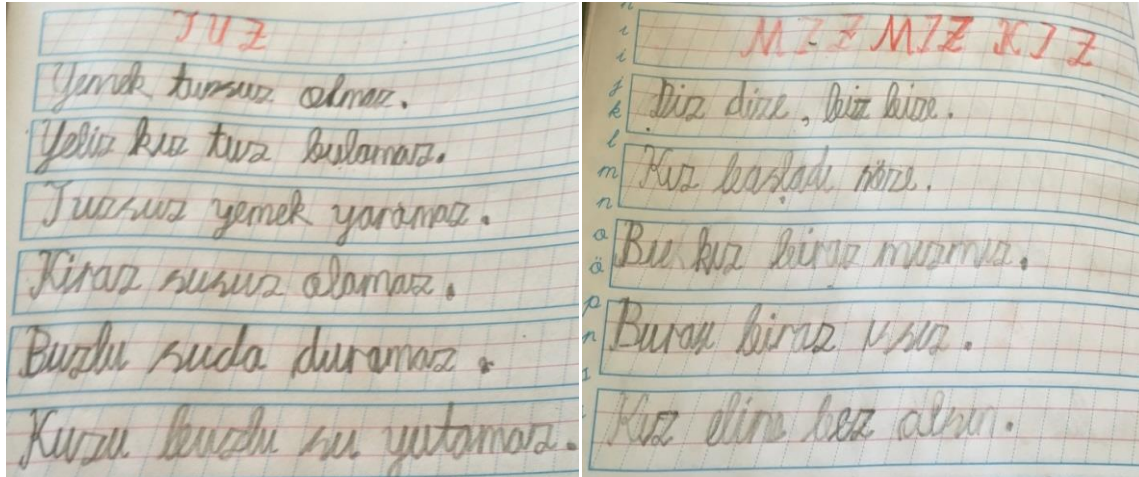 TUZ
Yemek tuzsuz olmaz.
Yeliz kız tuz bulamaz.
Tuzsuz yemek yaramaz.
Kiraz susuz olamaz.
Buzlu suda duramaz.
Kuzu buzlu su yutamaz.
MIZ MIZ KIZ
Diz dize, biz bize.
Kız başladı söze.
Bu kız biraz mızmız.
biraz
Kız eline bez alsın.
ı
i
j
k
l
m
n
o
ö
p
r